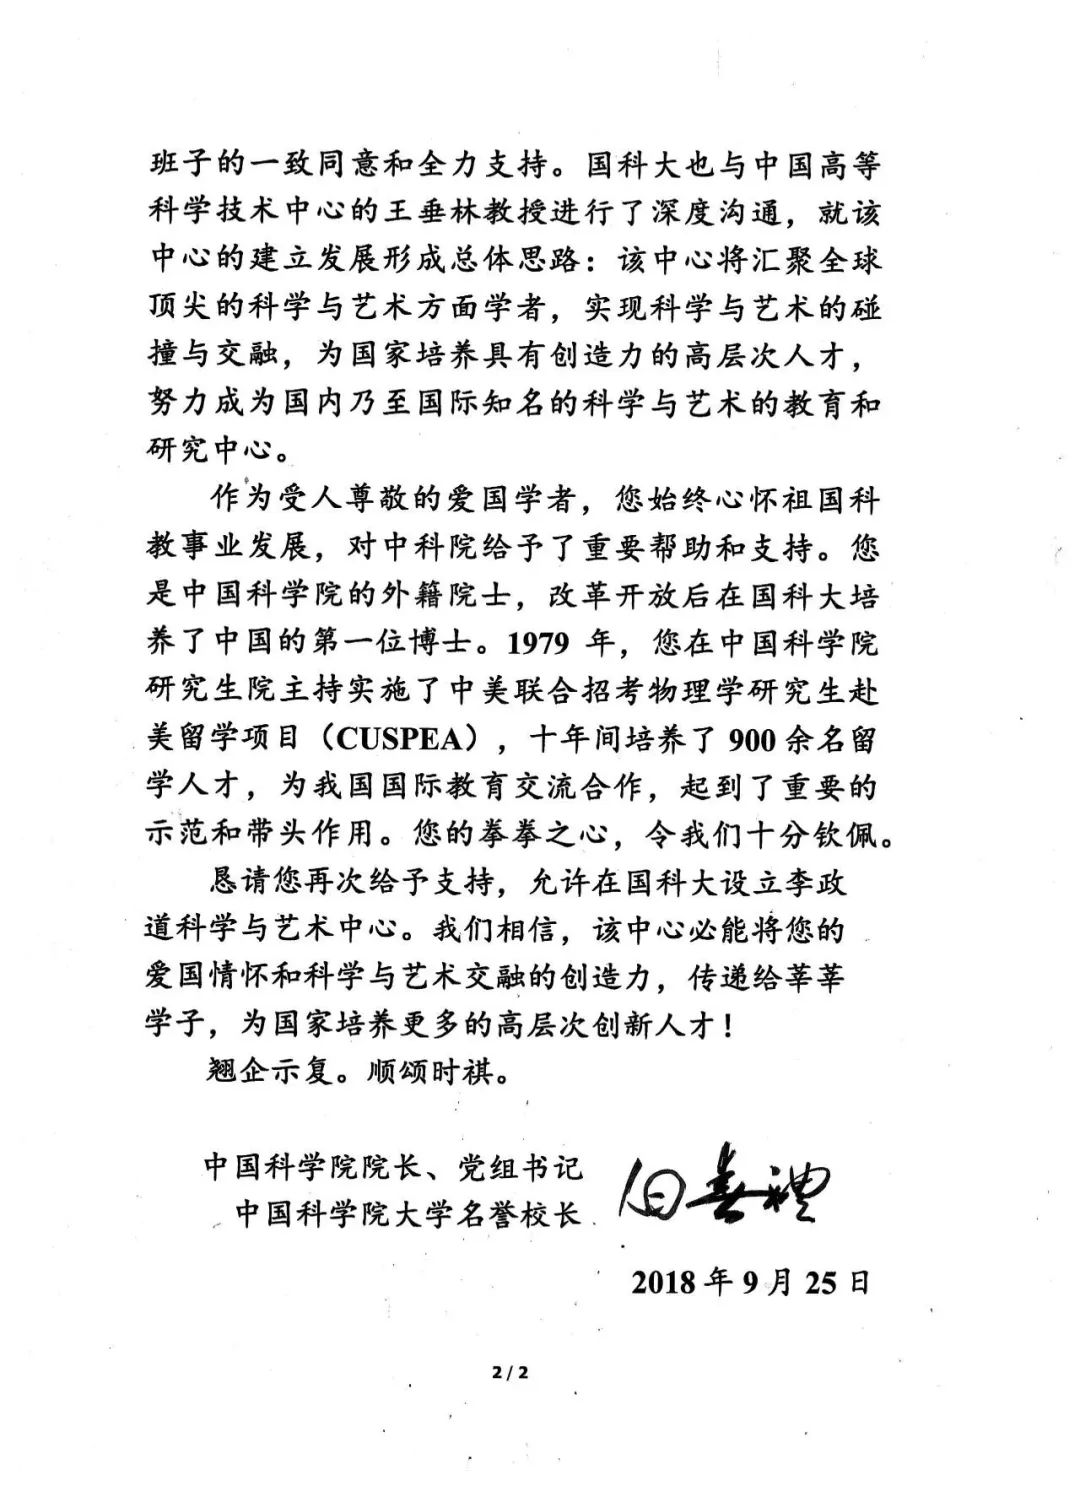 班子的一致同意和全力支持。国科大也与中国高等
科学技术中心的王垂林教授进行了深度沟通，就该
中心的建立发展形成总体思路：该中心将汇聚全球
顶尖的科学与艺术方面学者，实现科学与艺术的碰
撞与交融，为国家培养具有创造力的高层次人才，
努力成为国内乃至国际知名的科学与艺术的教育和
研究中心。
作为受人尊敬的爱国学者，您始终心怀祖国科
教事业发展，对中科院给予了重要帮助和支持。您
是中国科学院的外籍院士，改革开放后在国科大培
养了中国的第一位博士。1979 年，您在中国科学院
研究生院主持实施了中美联合招考物理学研究生赴
美留学项目（CUSPEA），十年间培养了 900 余名留
学人才，为我国国际教育交流合作，起到了重要的
示范和带头作用。您的拳拳之心，令我们十分钦佩。
恳请您再次给予支持，允许在国科大设立李政
道科学与艺术中心。我们相信，该中心必能将您的
爱国情怀和科学与艺术交融的创造力，传递给莘莘
学子，为国家培养更多的高层次创新人才！
翘企示复。顺颂时祺。
中国科学院院长、党组书记
中国科学院大学名誉校长
白春礼
2018 年 9 月 25 日
2 / 2